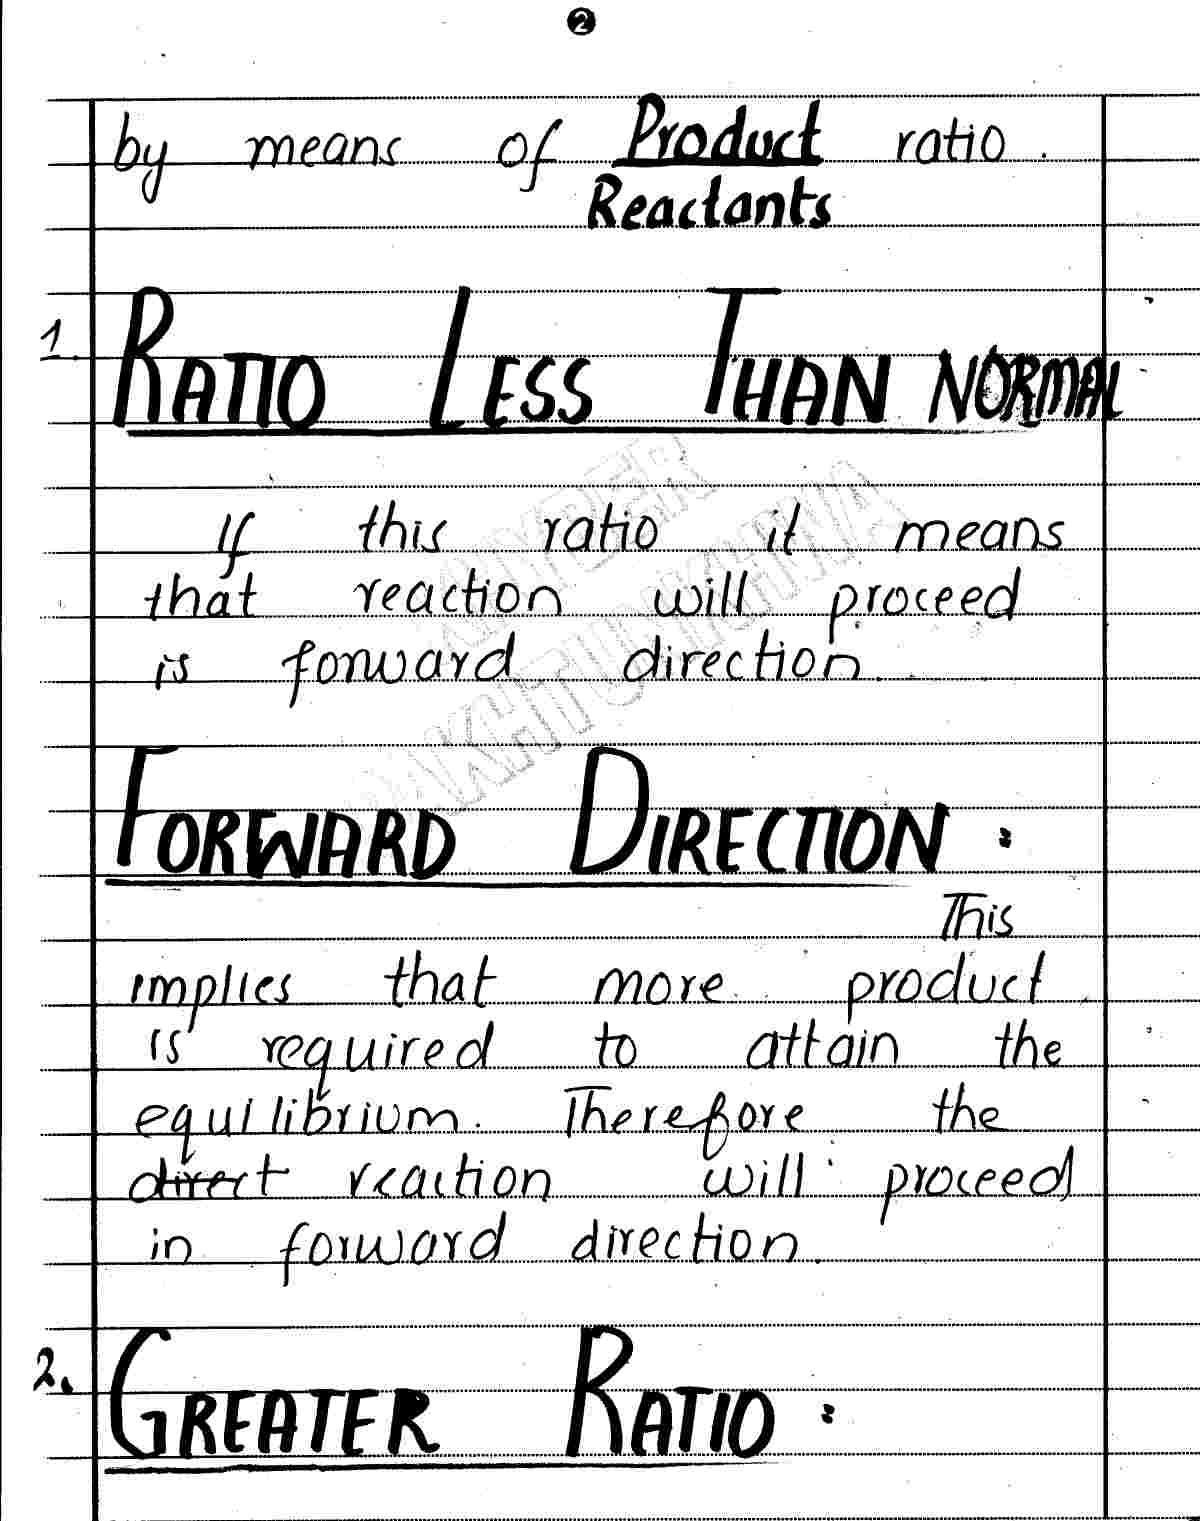 2
by means of Product ratio.
Reactants
1. RATIO LESS THAN NORMAL
If this ratio it means
that reaction will proceed
is forward direction.
FORWARD DIRECTION :
This
implies that more product
is required to attain the
equilibrium. Therefore the
direct reaction will proceed
in forward direction.
2. GREATER RATIO :
KHYBER
PAKHTUNKHWA